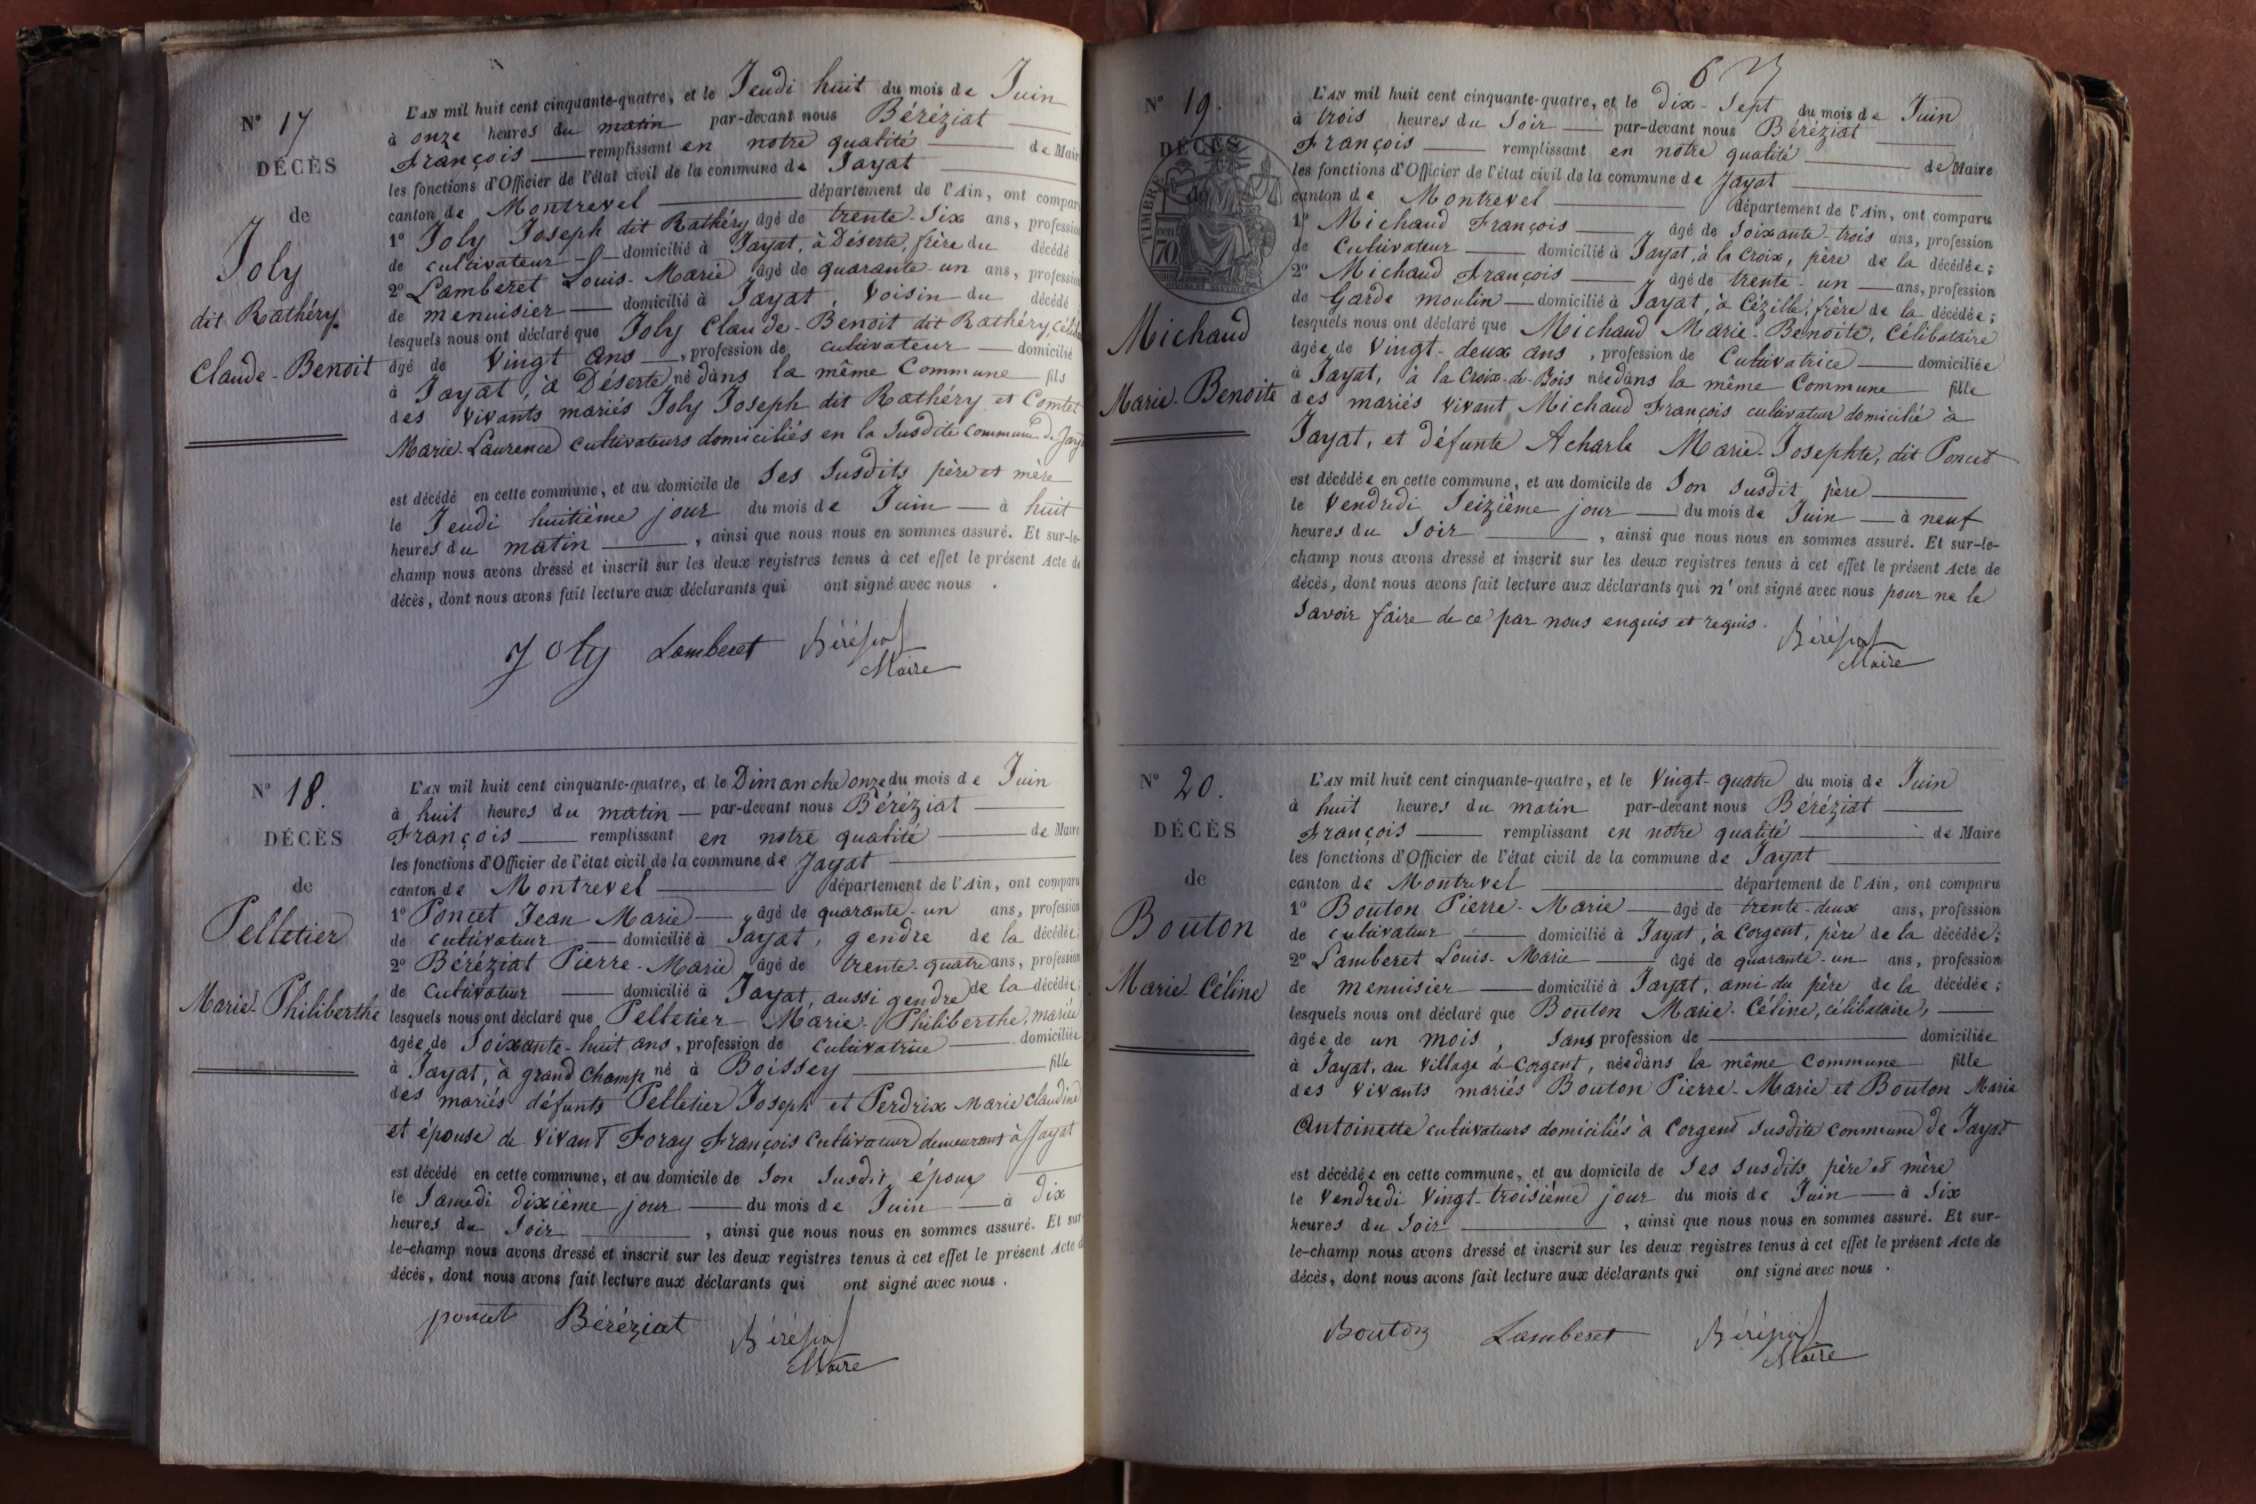 Nº 17
DÉCÈS
de
Joly
dit Rathéry
Claude-Benoit
L'AN mil huit cent cinquante-quatre, et le Jeudi huit du mois de Juin
à onze heures du matin par-devant nous Béréziat
François remplissant en notre qualité de Maire
les fonctions d'Officier de l'état civil de la commune de Jayat
canton de Montrevel département de l'Ain, ont comparu
1º Joly Joseph dit Rathéry âgé de trente-six ans, profession
de cultivateur domicilié à Jayat, à Déserte, frère du décédé
2º Lamberet Louis-Marie âgé de quarante-un ans, profession
de menuisier domicilié à Jayat, voisin du décédé
lesquels nous ont déclaré que Joly Claude-Benoit dit Rathéry,
âgé de Vingt ans, profession de cultivateur domicilié
à Jayat, à Déserte né dans la même Commune fils
des vivants mariés Joly Joseph dit Rathéry et Comtet
Marie-Laurence cultivateurs domiciliés en la susdite commune de Jayat
est décédé en cette commune, et au domicile de ses susdits père et mère
le Jeudi huitième jour du mois de Juin à huit
heures du matin, ainsi que nous nous en sommes assuré. Et sur-le-
champ nous avons dressé et inscrit sur les deux registres tenus à cet effet le présent Acte de
décès, dont nous avons fait lecture aux déclarants qui ont signé avec nous.
Joly Lamberet Béréziat
Maire
Nº 18.
DÉCÈS
de
Pelletier
Marie-Philiberthe
L'AN mil huit cent cinquante-quatre, et le Dimanche onze du mois de Juin
à huit heures du matin par-devant nous Béréziat
François remplissant en notre qualité de Maire
les fonctions d'Officier de l'état civil de la commune de Jayat
canton de Montrevel département de l'Ain, ont comparu
1º Poncet Jean Marie âgé de quarante-un ans, profession
de cultivateur domicilié à Jayat, gendre de la décédée;
2º Béréziat Pierre-Marie âgé de trente-quatre ans, profession
de cultivateur domicilié à Jayat, aussi gendre de la décédée;
lesquels nous ont déclaré que Pelletier Marie-Philiberthe, mariée
âgée de soixante-huit ans, profession de cultivatrice domiciliée
à Jayat, à grand Champ né à Boissey fille
des mariés défunts Pelletier Joseph et Perdrix Marie Claudine
et épouse de vivant Foray François cultivateur demeurant à Jayat
est décédé en cette commune, et au domicile de son susdit époux
le Samedi dixième jour du mois de Juin à dix
heures du soir, ainsi que nous nous en sommes assuré. Et sur-
le-champ nous avons dressé et inscrit sur les deux registres tenus à cet effet le présent Acte de
décès, dont nous avons fait lecture aux déclarants qui ont signé avec nous.
poncet Béréziat Béréziat
Maire
Nº 19.
DÉCÈS
de
TIMBRE
70
Michaud
Marie-Benoite
L'AN mil huit cent cinquante-quatre, et le dix-sept du mois de Juin
à trois heures du soir par-devant nous Béréziat
François remplissant en notre qualité de Maire
les fonctions d'Officier de l'état civil de la commune de Jayat
canton de Montrevel département de l'Ain, ont comparu
1º Michaud François âgé de soixante-trois ans, profession
de cultivateur domicilié à Jayat, à la Croix, père de la décédée;
2º Michaud François âgé de trente-un ans, profession
de Garde moulin domicilié à Jayat, à Cézille, frère de la décédée;
lesquels nous ont déclaré que Michaud Marie-Benoite, Célibataire
âgée de Vingt-deux ans, profession de Cultivatrice domiciliée
à Jayat, à la Croix-de-Bois née dans la même Commune fille
des mariés vivant Michaud François cultivateur domicilié à
Jayat, et défunte Acharle Marie-Josephte, dit Poncet
est décédée en cette commune, et au domicile de son susdit père
le Vendredi Seizième jour du mois de Juin à neuf
heures du soir, ainsi que nous nous en sommes assuré. Et sur-le-
champ nous avons dressé et inscrit sur les deux registres tenus à cet effet le présent Acte de
décès, dont nous avons fait lecture aux déclarants qui n'ont signé avec nous pour ne le
savoir faire de ce par nous enquis et requis.
Béréziat
Maire
Nº 20.
DÉCÈS
de
Bouton
Marie-Céline
L'AN mil huit cent cinquante-quatre, et le Vingt-quatre du mois de Juin
à huit heures du matin par-devant nous Béréziat
François remplissant en notre qualité de Maire
les fonctions d'Officier de l'état civil de la commune de Jayat
canton de Montrevel département de l'Ain, ont comparu
1º Bouton Pierre-Marie âgé de trente-deux ans, profession
de cultivateur domicilié à Jayat, à Corgent, père de la décédée;
2º Lamberet Louis-Marie âgé de quarante-un ans, profession
de menuisier domicilié à Jayat, ami du père de la décédée;
lesquels nous ont déclaré que Bouton Marie-Céline, célibataire,
âgée de un mois, sans profession de domiciliée
à Jayat, au village de Corgent, née dans la même commune fille
des vivants mariés Bouton Pierre-Marie et Bouton Marie
Antoinette cultivateurs domiciliés à Corgent susdite commune de Jayat
est décédée en cette commune, et au domicile de ses susdits père et mère
le Vendredi Vingt-troisième jour du mois de Juin à six
heures du soir, ainsi que nous nous en sommes assuré. Et sur-
le-champ nous avons dressé et inscrit sur les deux registres tenus à cet effet le présent Acte de
décès, dont nous avons fait lecture aux déclarants qui ont signé avec nous.
Bouton Lamberet Béréziat
Maire